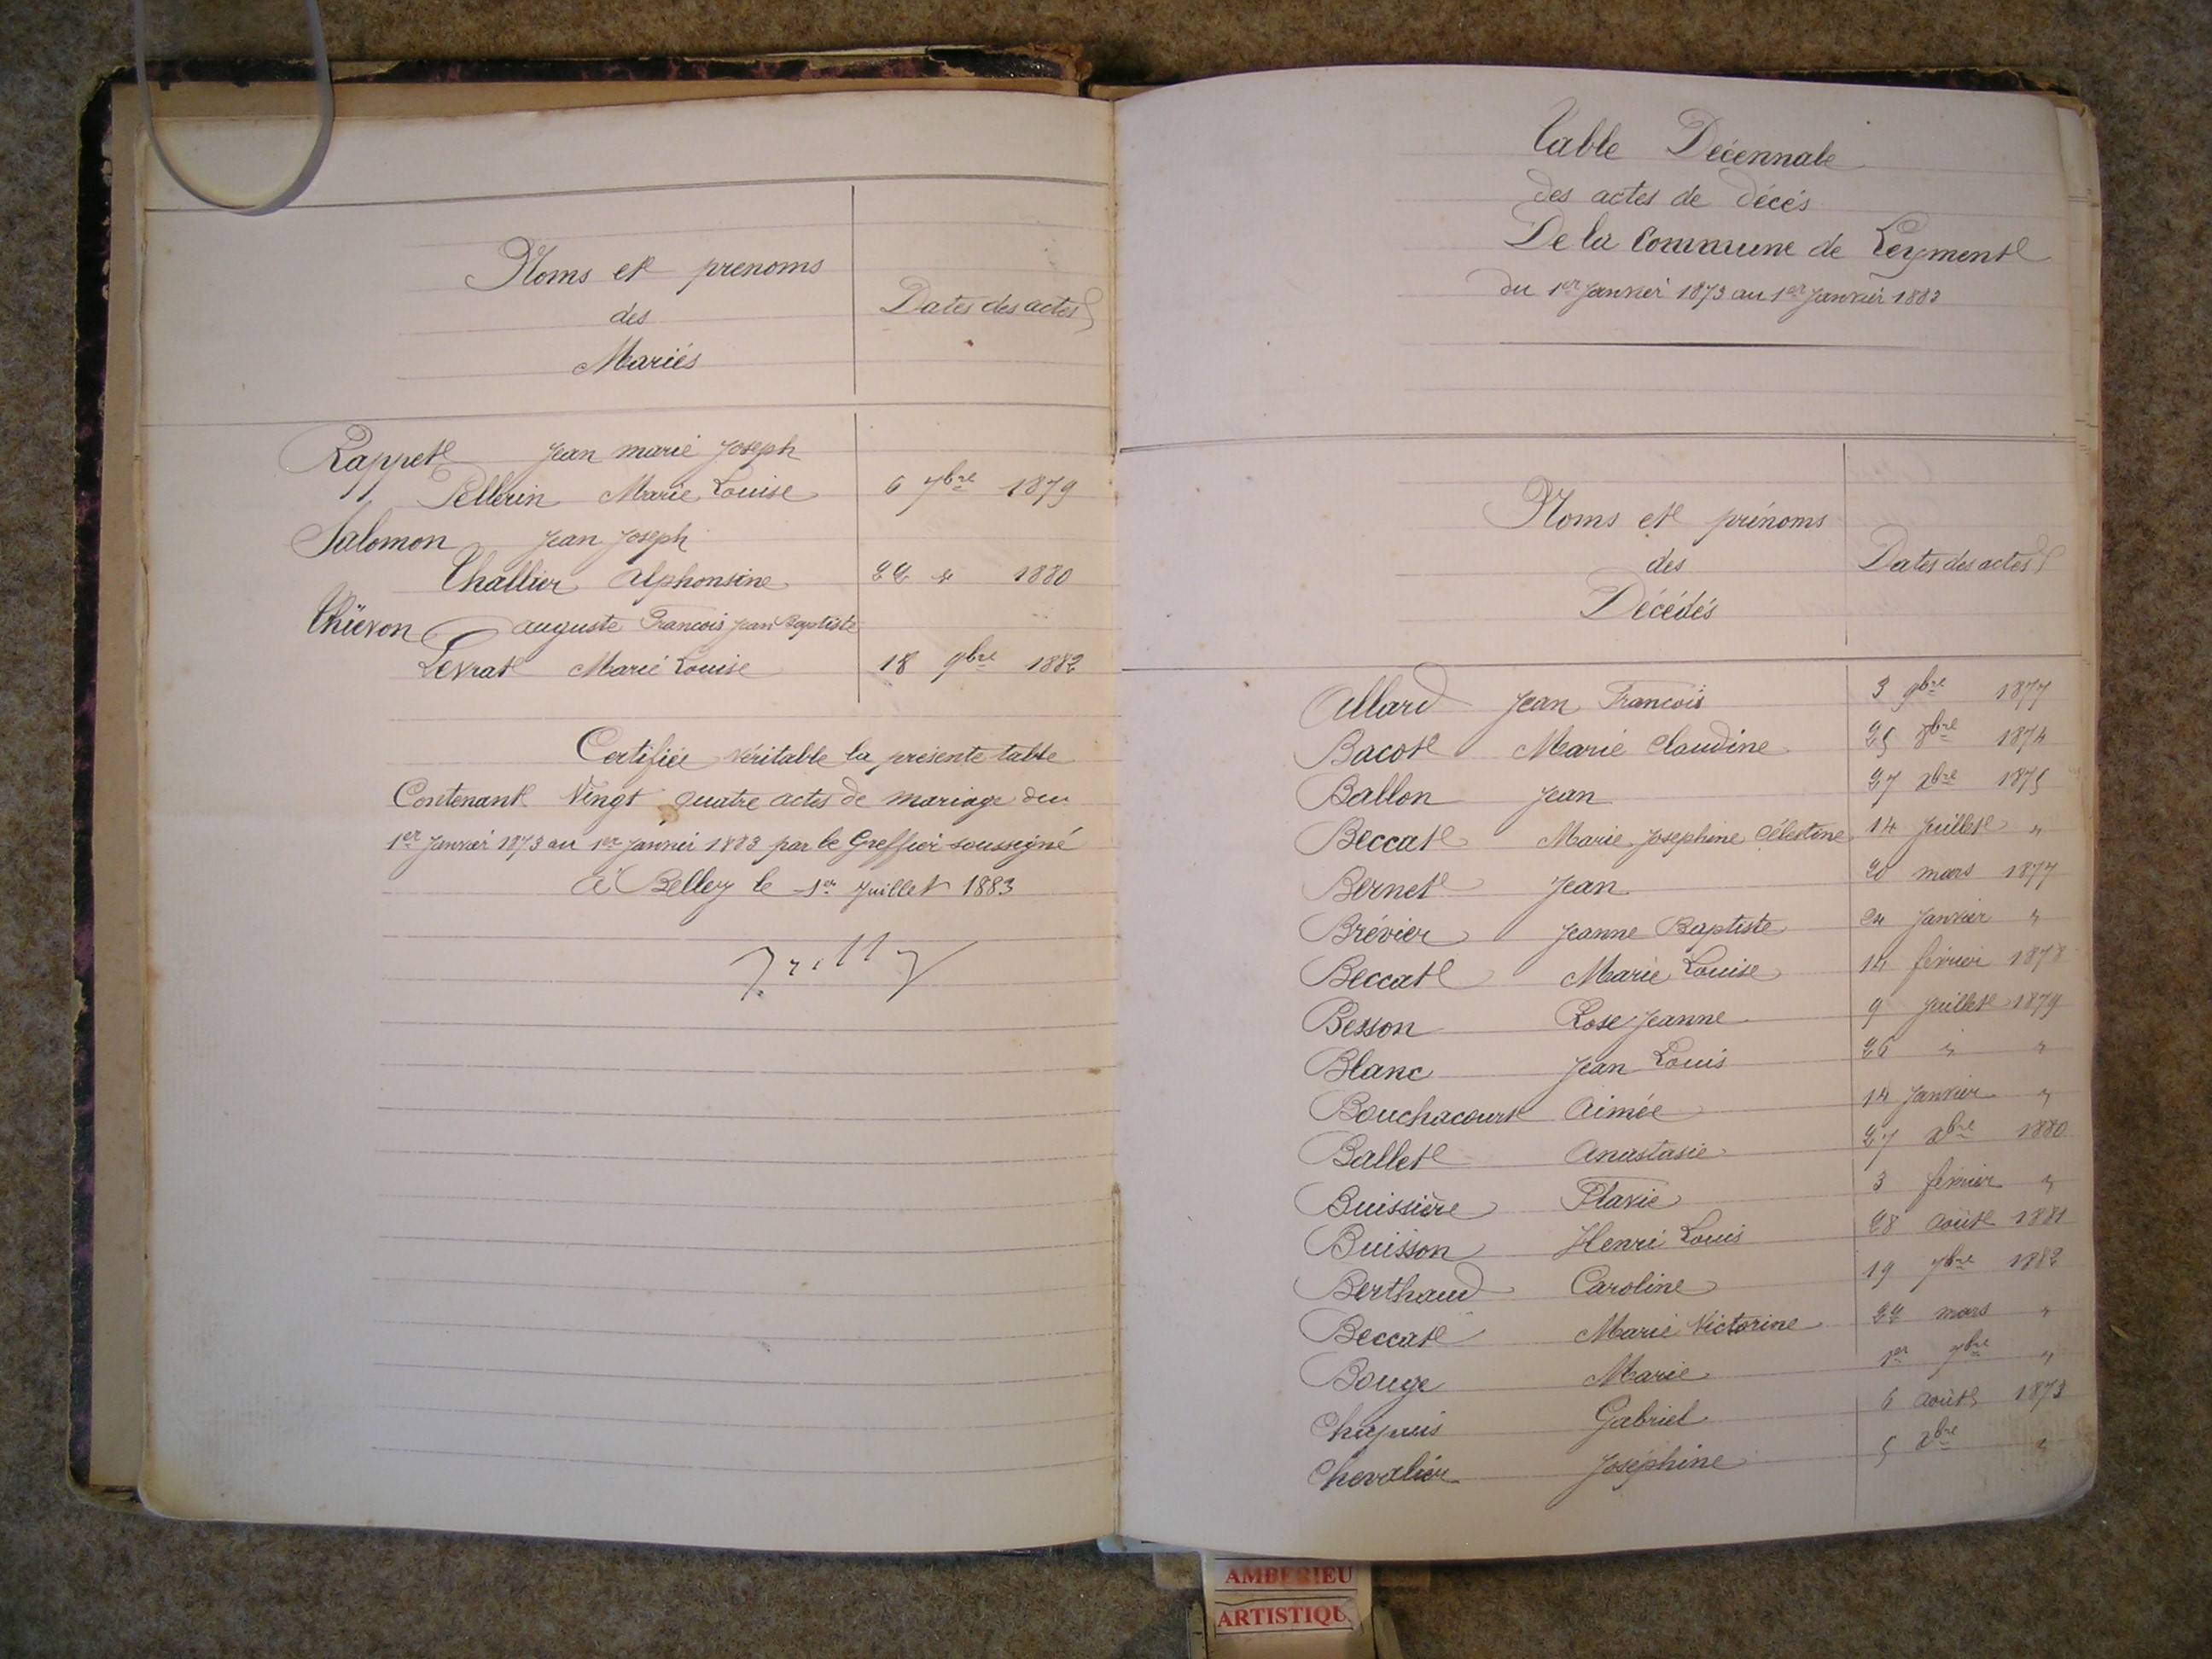 Noms et prenoms
des
Mariés
Dates des actes
Rappet Jean marie Joseph
Pellerin Marie Louise 6 7bre 1879
Salomon Jean Joseph
Challier Alphonsine 22 " 1880
Thiévon auguste Francois Jean Baptiste
Levrat Marie Louise 18 9bre 1882
Certifiée véritable la présente table
Contenant Vingt quatre actes de mariage du
1er Janvier 1873 au 1er Janvier 1883 par le Greffier soussigné
à Belley le 1er Juillet 1883
Table Décennale
des actes de décés
De la Commune de Leyment
du 1er Janvier 1873 au 1er Janvier 1883
Noms et prénoms
des
Décédés
Dates des actes
Allard Jean Francois 3 9bre 1877
Bacot Marie Claudine 25 8bre 1874
Ballon Jean 27 xbre 1875
Beccat Marie Josephine Célestine 14 Juillet "
Bernet Jean 20 mars 1877
Brévier Jeanne Baptiste 24 Janvier "
Beccat Marie Louise 14 février 1878
Besson Rose Jeanne 9 Juillet 1879
Blanc Jean Louis 26 " "
Bouchacourt Aimée 14 Janvier "
Ballet Anastasie 27 xbre 1880
Buissière Flavie 3 février "
Buisson Henri Louis 28 Août 1881
Berthaud Caroline 19 7bre 1882
Beccat Marie Victorine 22 mars "
Bouge Marie 1er 7bre "
Chapuis Gabriel 6 Août 1873
Chevalier Joséphine 5 xbre "
AMBERIEU
ARTISTIQU